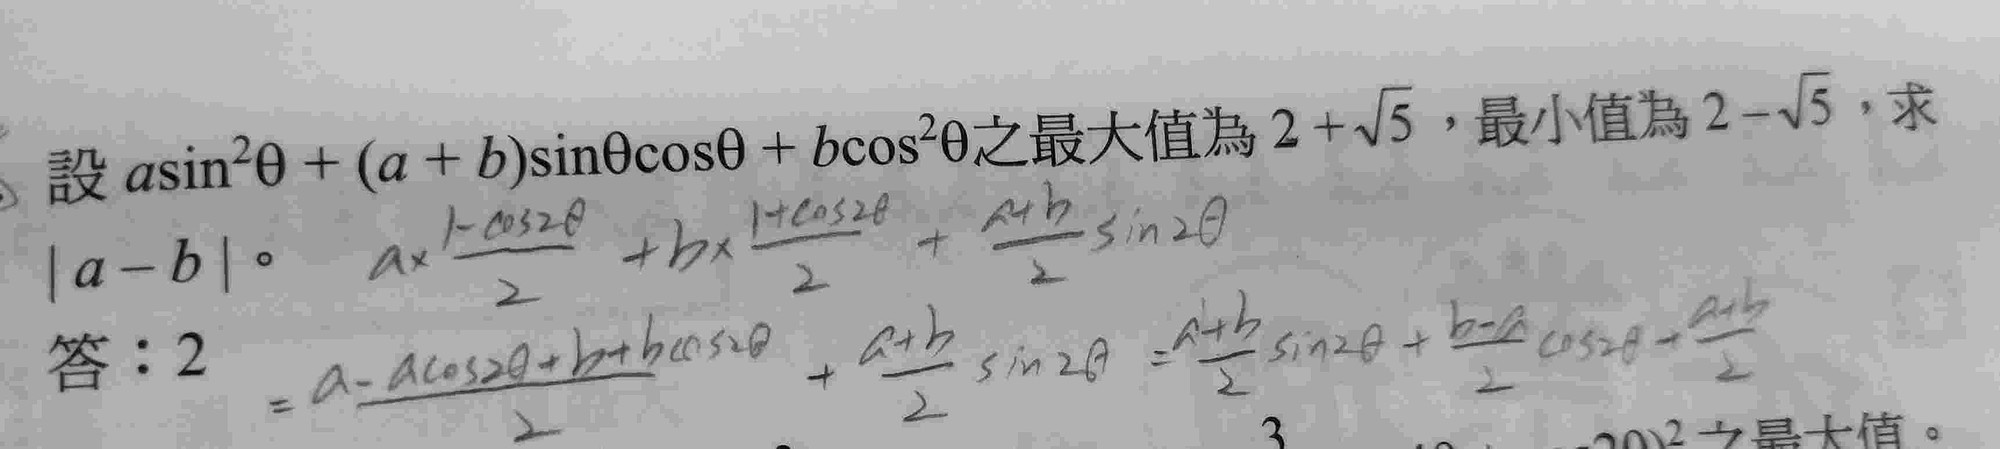 設 asin²θ + (a + b)sinθcosθ + bcos²θ之最大值為 2 + √5，最小值為 2 − √5，求
| a − b |。 a× (1-cos2θ)/2 + b× (1+cos2θ)/2 + (a+b)/2 sin2θ
答：2 = (a-acos2θ+b+bcos2θ)/2 + (a+b)/2 sin2θ = (a+b)/2 sin2θ + (b-a)/2 cos2θ + (a+b)/2
3 之最大值。